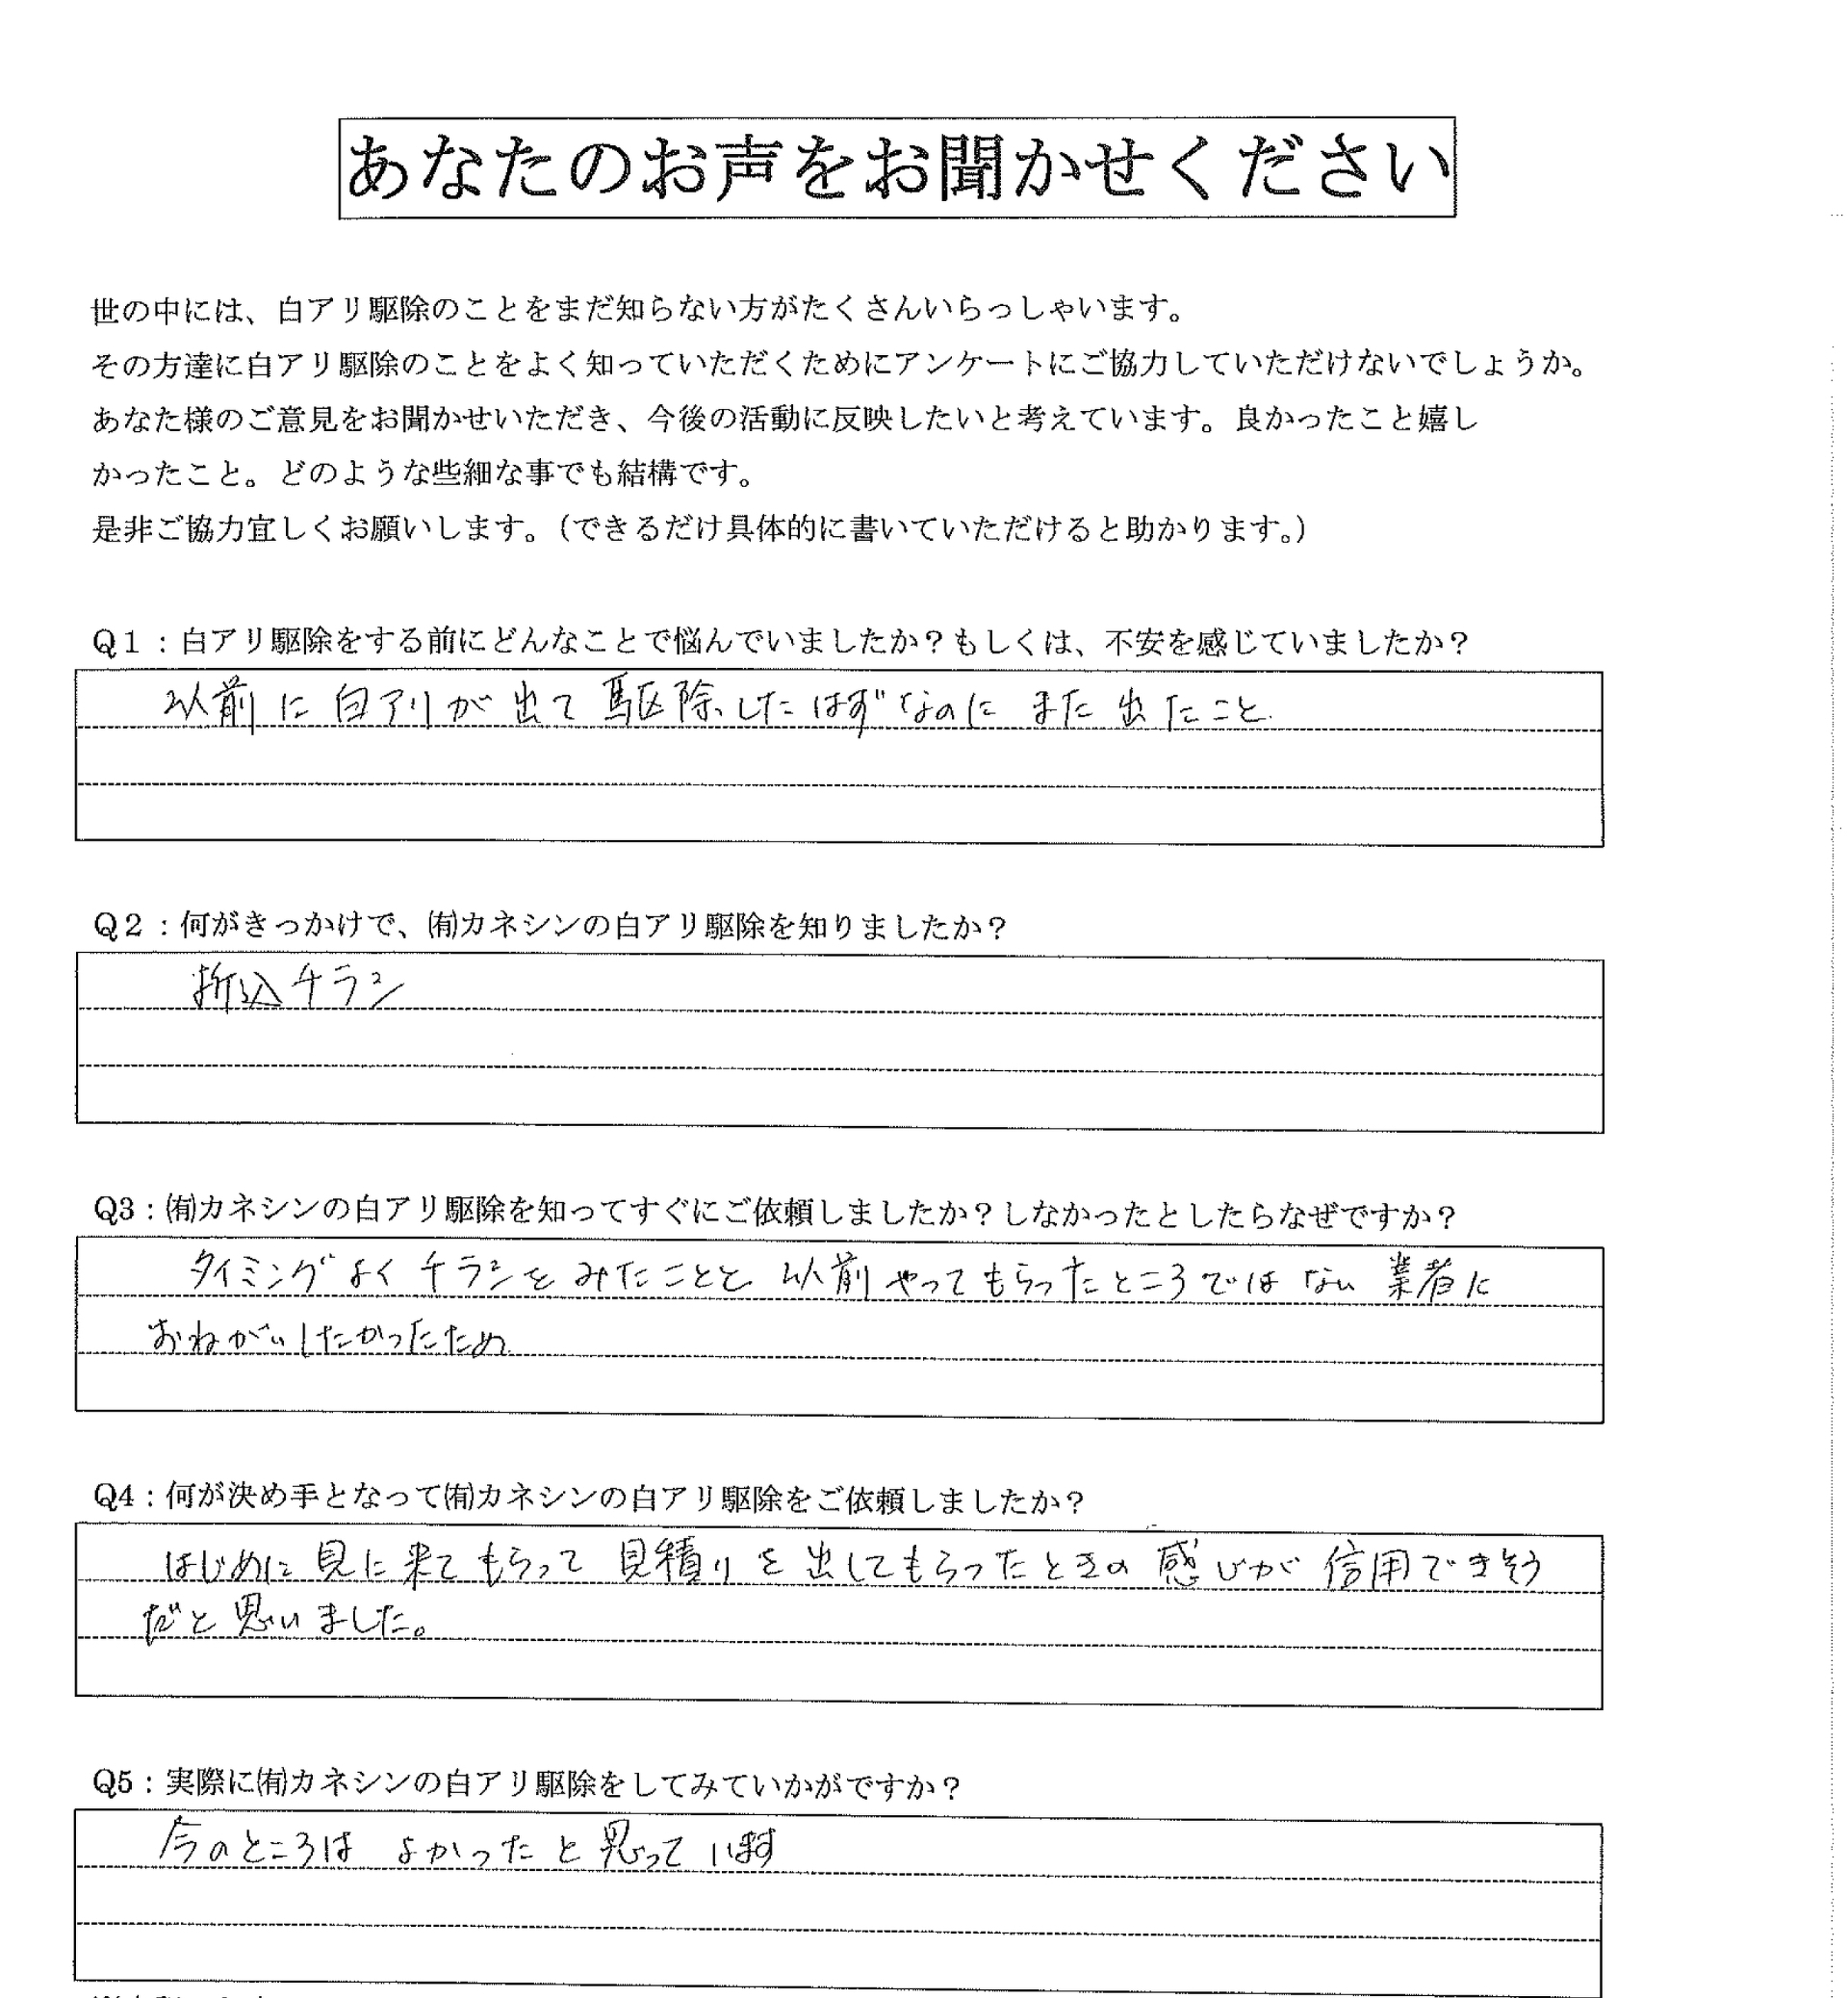 あなたのお声をお聞かせください
世の中には、白アリ駆除のことをまだ知らない方がたくさんいらっしゃいます。
その方達に白アリ駆除のことをよく知っていただくためにアンケートにご協力していただけないでしょうか。
あなた様のご意見をお聞かせいただき、今後の活動に反映したいと考えています。良かったこと嬉し
かったこと。どのような些細な事でも結構です。
是非ご協力宜しくお願いします。（できるだけ具体的に書いていただけると助かります。）
Q１：白アリ駆除をする前にどんなことで悩んでいましたか？もしくは、不安を感じていましたか？
以前に白アリが出て駆除したはずなのにまた出たこと
Q２：何がきっかけで、㈲カネシンの白アリ駆除を知りましたか？
折込チラシ
Q3：㈲カネシンの白アリ駆除を知ってすぐにご依頼しましたか？しなかったとしたらなぜですか？
タイミングよくチラシをみたことと以前やってもらったところではない業者に
おねがいしたかったため
Q4：何が決め手となって㈲カネシンの白アリ駆除をご依頼しましたか？
はじめに見に来てもらって見積りを出してもらったときの感じが信用できそう
だと思いました。
Q5：実際に㈲カネシンの白アリ駆除をしてみていかがですか？
今のところはよかったと思っています